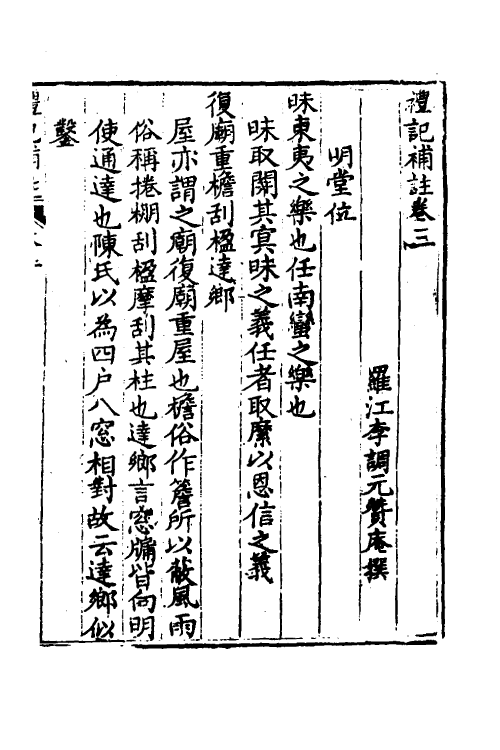 禮記補註卷三
羅江李調元贊庵撰
明堂位
昧東夷之樂也任南蠻之樂也
昧取闇其㝠昧之義任者取縻以恩信之義
復廟重檐刮楹達鄉
屋亦謂之廟復廟重屋也檐俗作簷所以蔽風雨
俗稱捲棚刮楹摩刮其柱也達鄉言窓牖皆向明
使通達也陳氏以為四户八窓相對故云達鄉似
鑿